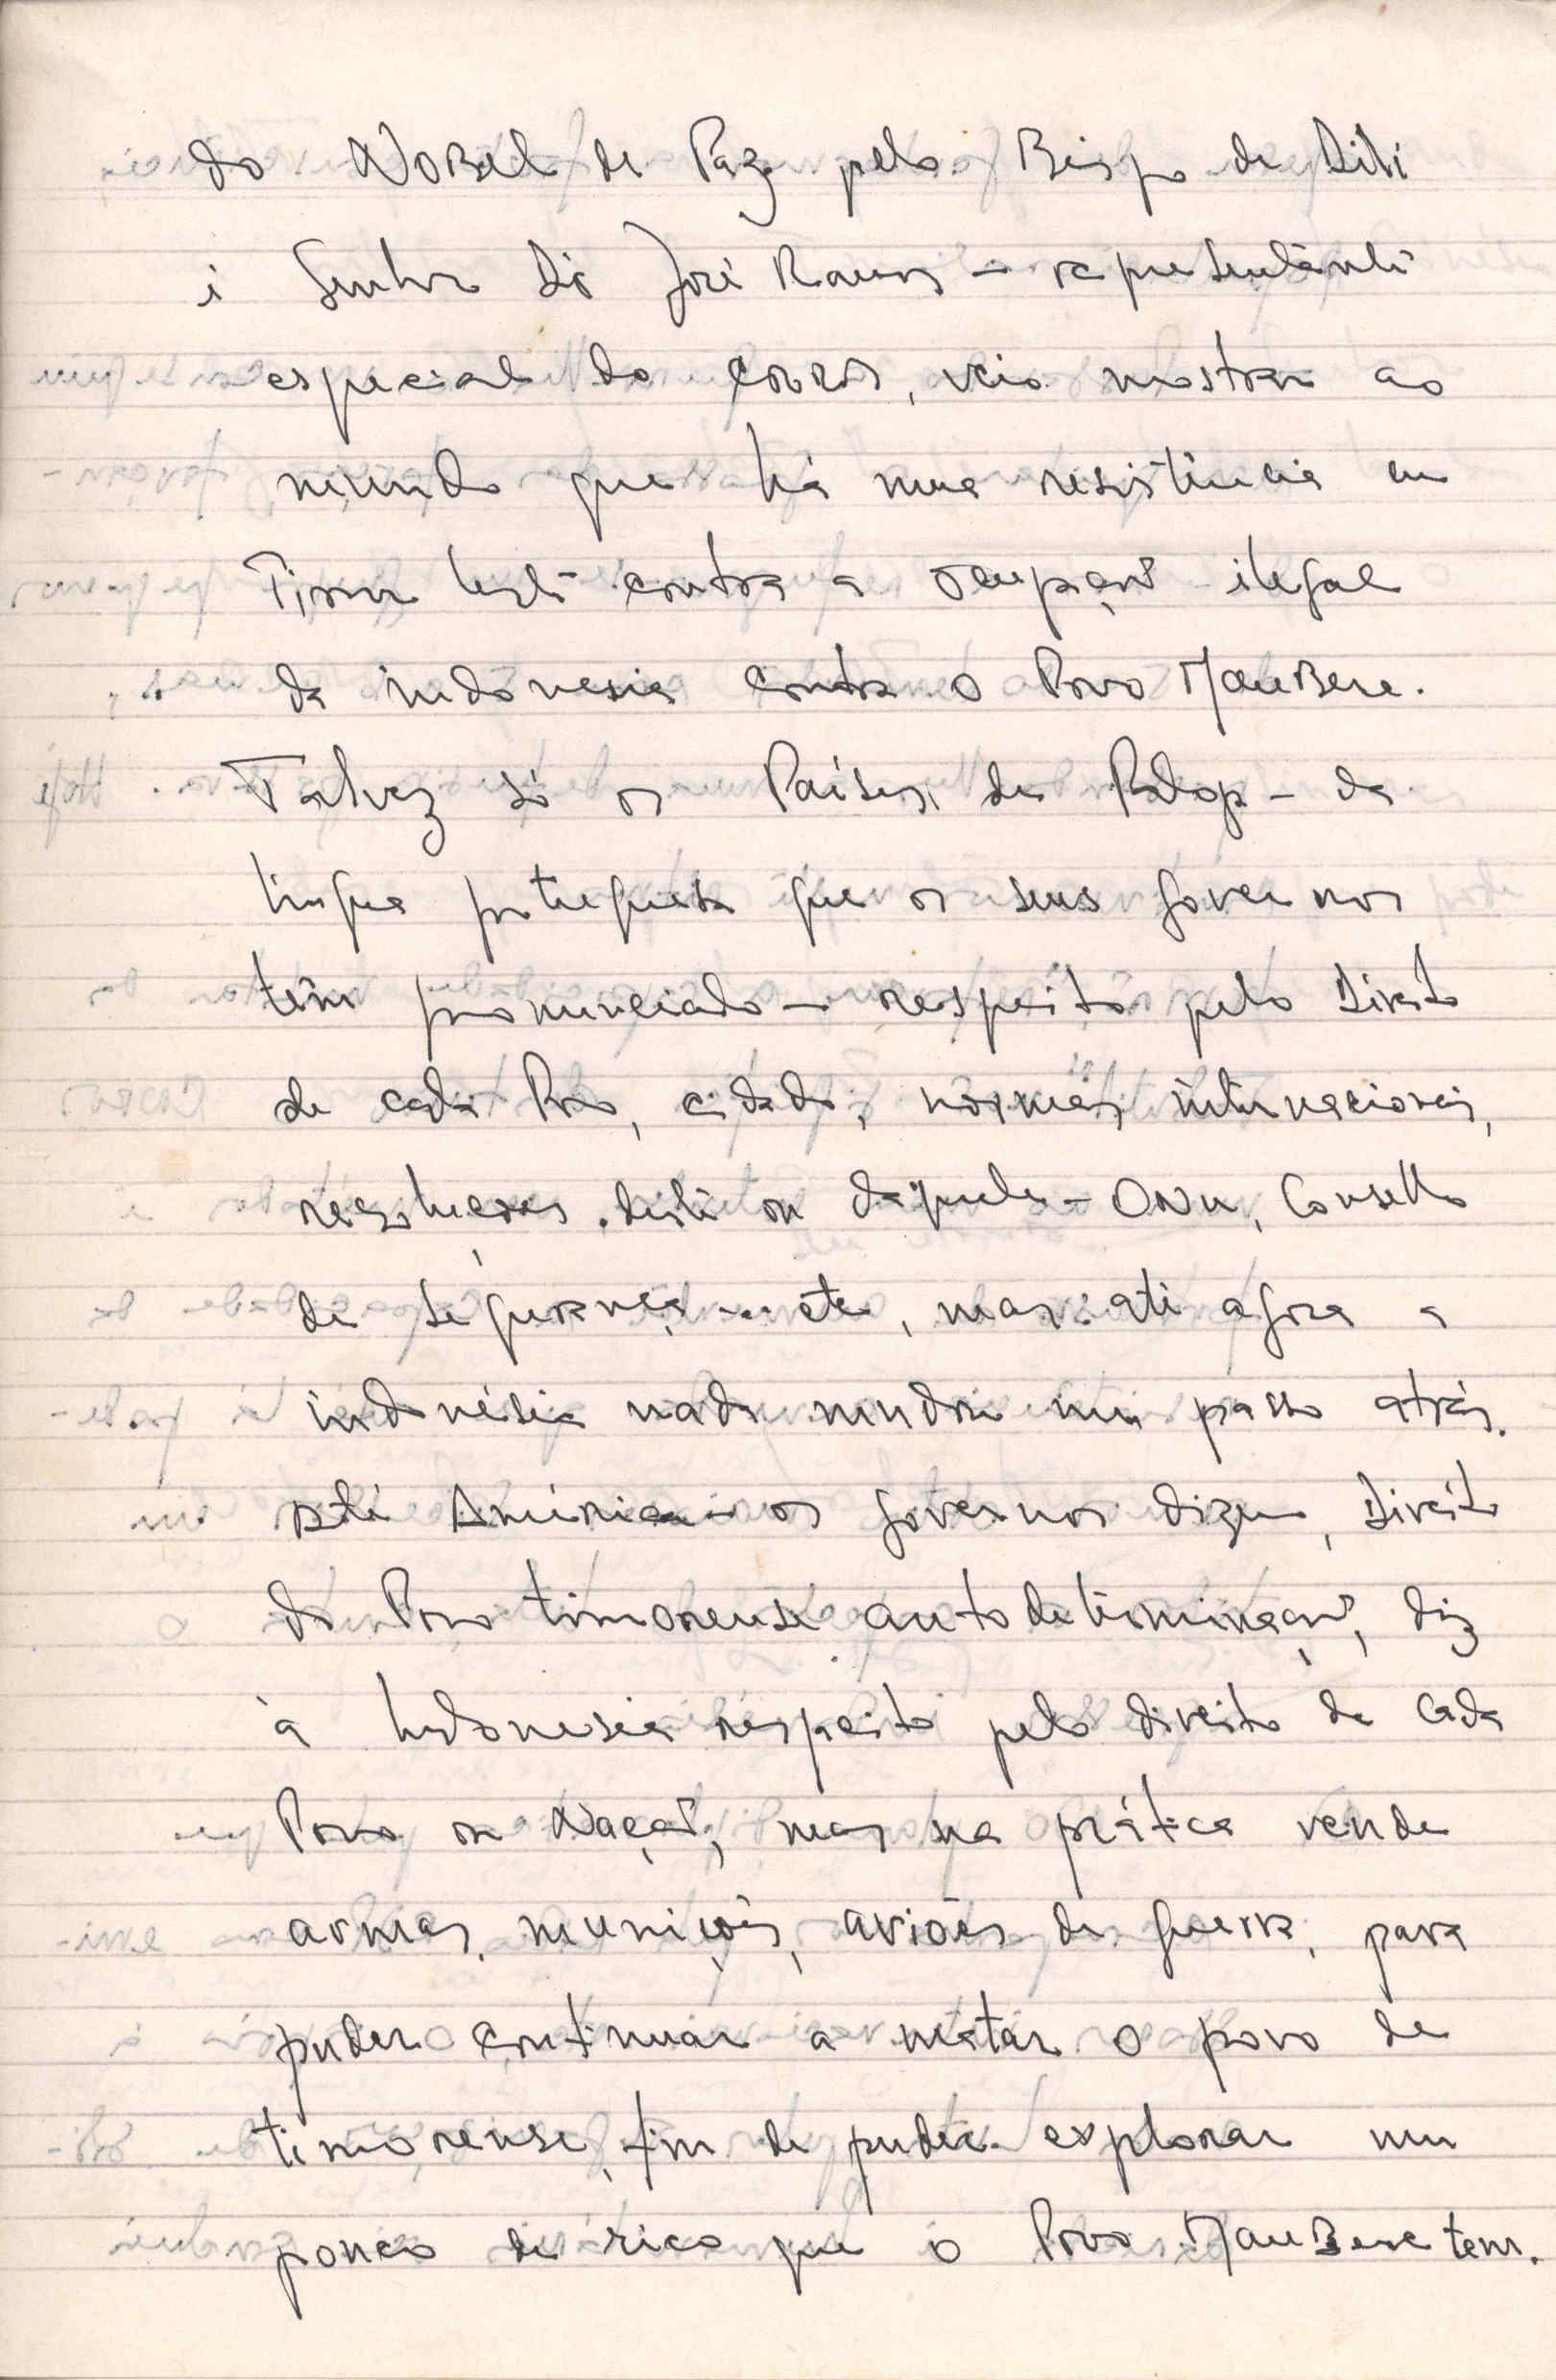 do Nobel da Paz pelo Bispo de Dili
i Senhor Dr José Ramos – representante
especial do CNRM, veio mostrar ao
mundo que há uma resistência em
Timor Leste contra a ocupação ilegal
da indonesia contra o Povo MauBere.
Talvez só os Países de Palop – da
língua portuguesa que os seus governos
têm pronunciado – respeito pelo Direito
de cada Povo, cidade, normas internacionais,
resoluções, deste ou daquele – ONU, Conselho
de segurança ... etc, mas até agora a
indonésia nada mudou um passo atrás.
até América – os governos dizem, Direito
do Povo timorense autodeterminação, diz
à Indonesia respeito pelo direito de cada
Povo ou Nação, mas na prática vende
armas, munições, aviões de guerra, para
puder continuar a matar o povo de
timorense, fim de puder explorar um
pouco de rico que o Povo MauBere tem.